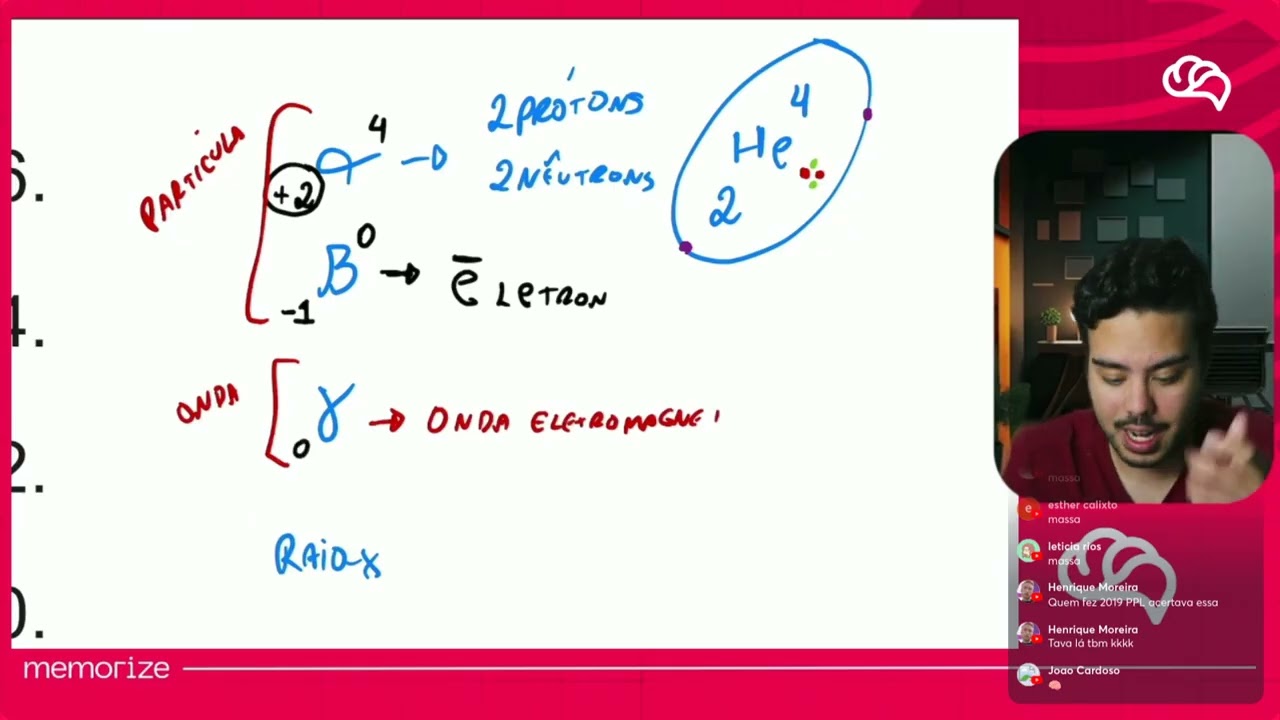 6.
4.
2.
0.
PARTÍCULA
+2
4
2 PRÓTONS
2 NÊUTRONS
4
He
2
B
0
-1
e LETRON
ONDA
γ
0
ONDA ELETROMAGNE
RAIO X
massa
esther calixto
massa
leticia rios
massa
Henrique Moreira
Quem fez 2019 PPL acertava essa
Henrique Moreira
Tava lá tbm kkkk
Joao Cardoso
e
memorize